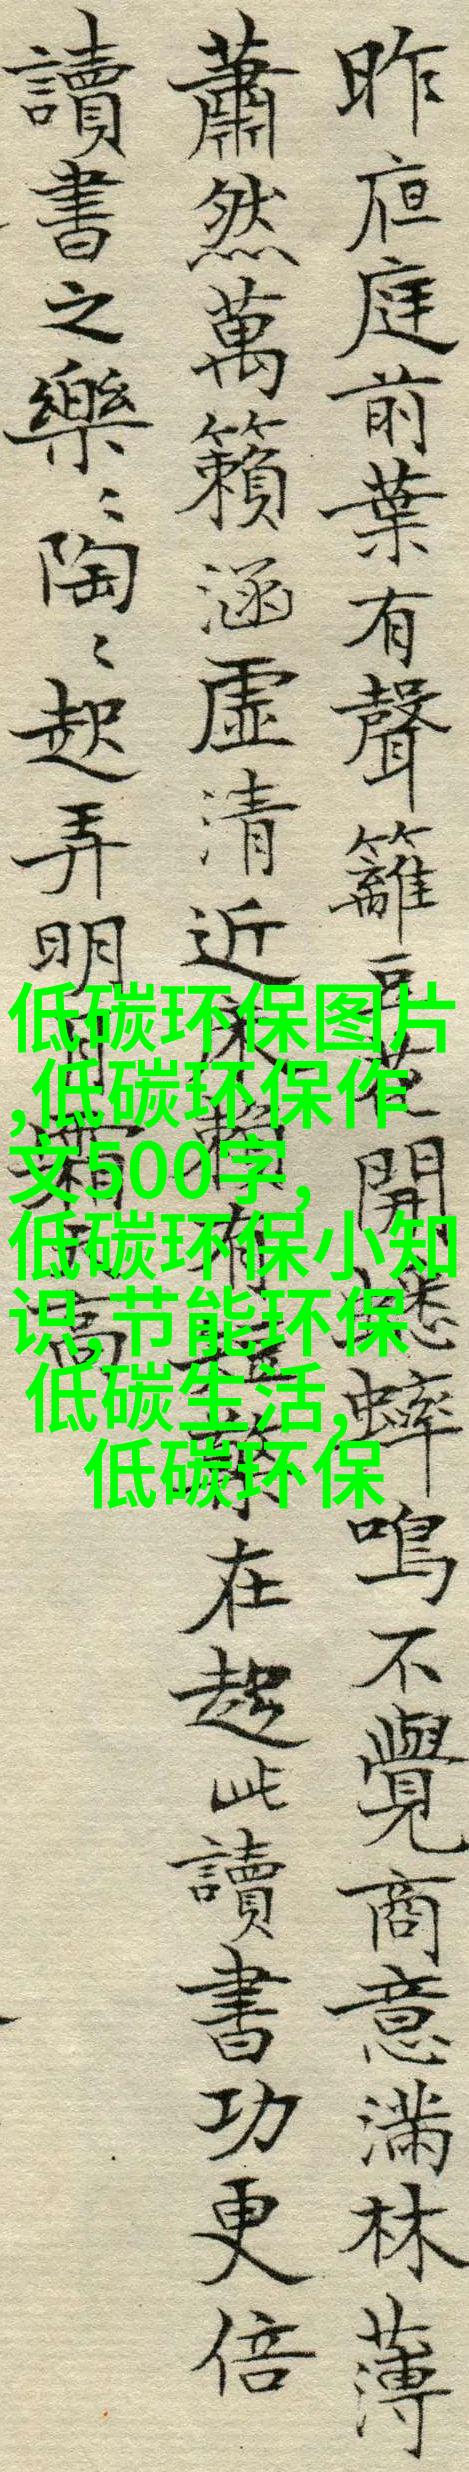 昨亱庭前葉有聲籬豆花開蟋蟀鳴不覺商意滿林薄
蕭然萬籟涵虛清近床賴有短檠在此讀書功更倍
讀書之樂〻陶〻起弄明月霜天高
低碳环保图片
,低碳环保作
文500字,
低碳环保小知
识,节能环保
低碳生活,
低碳环保